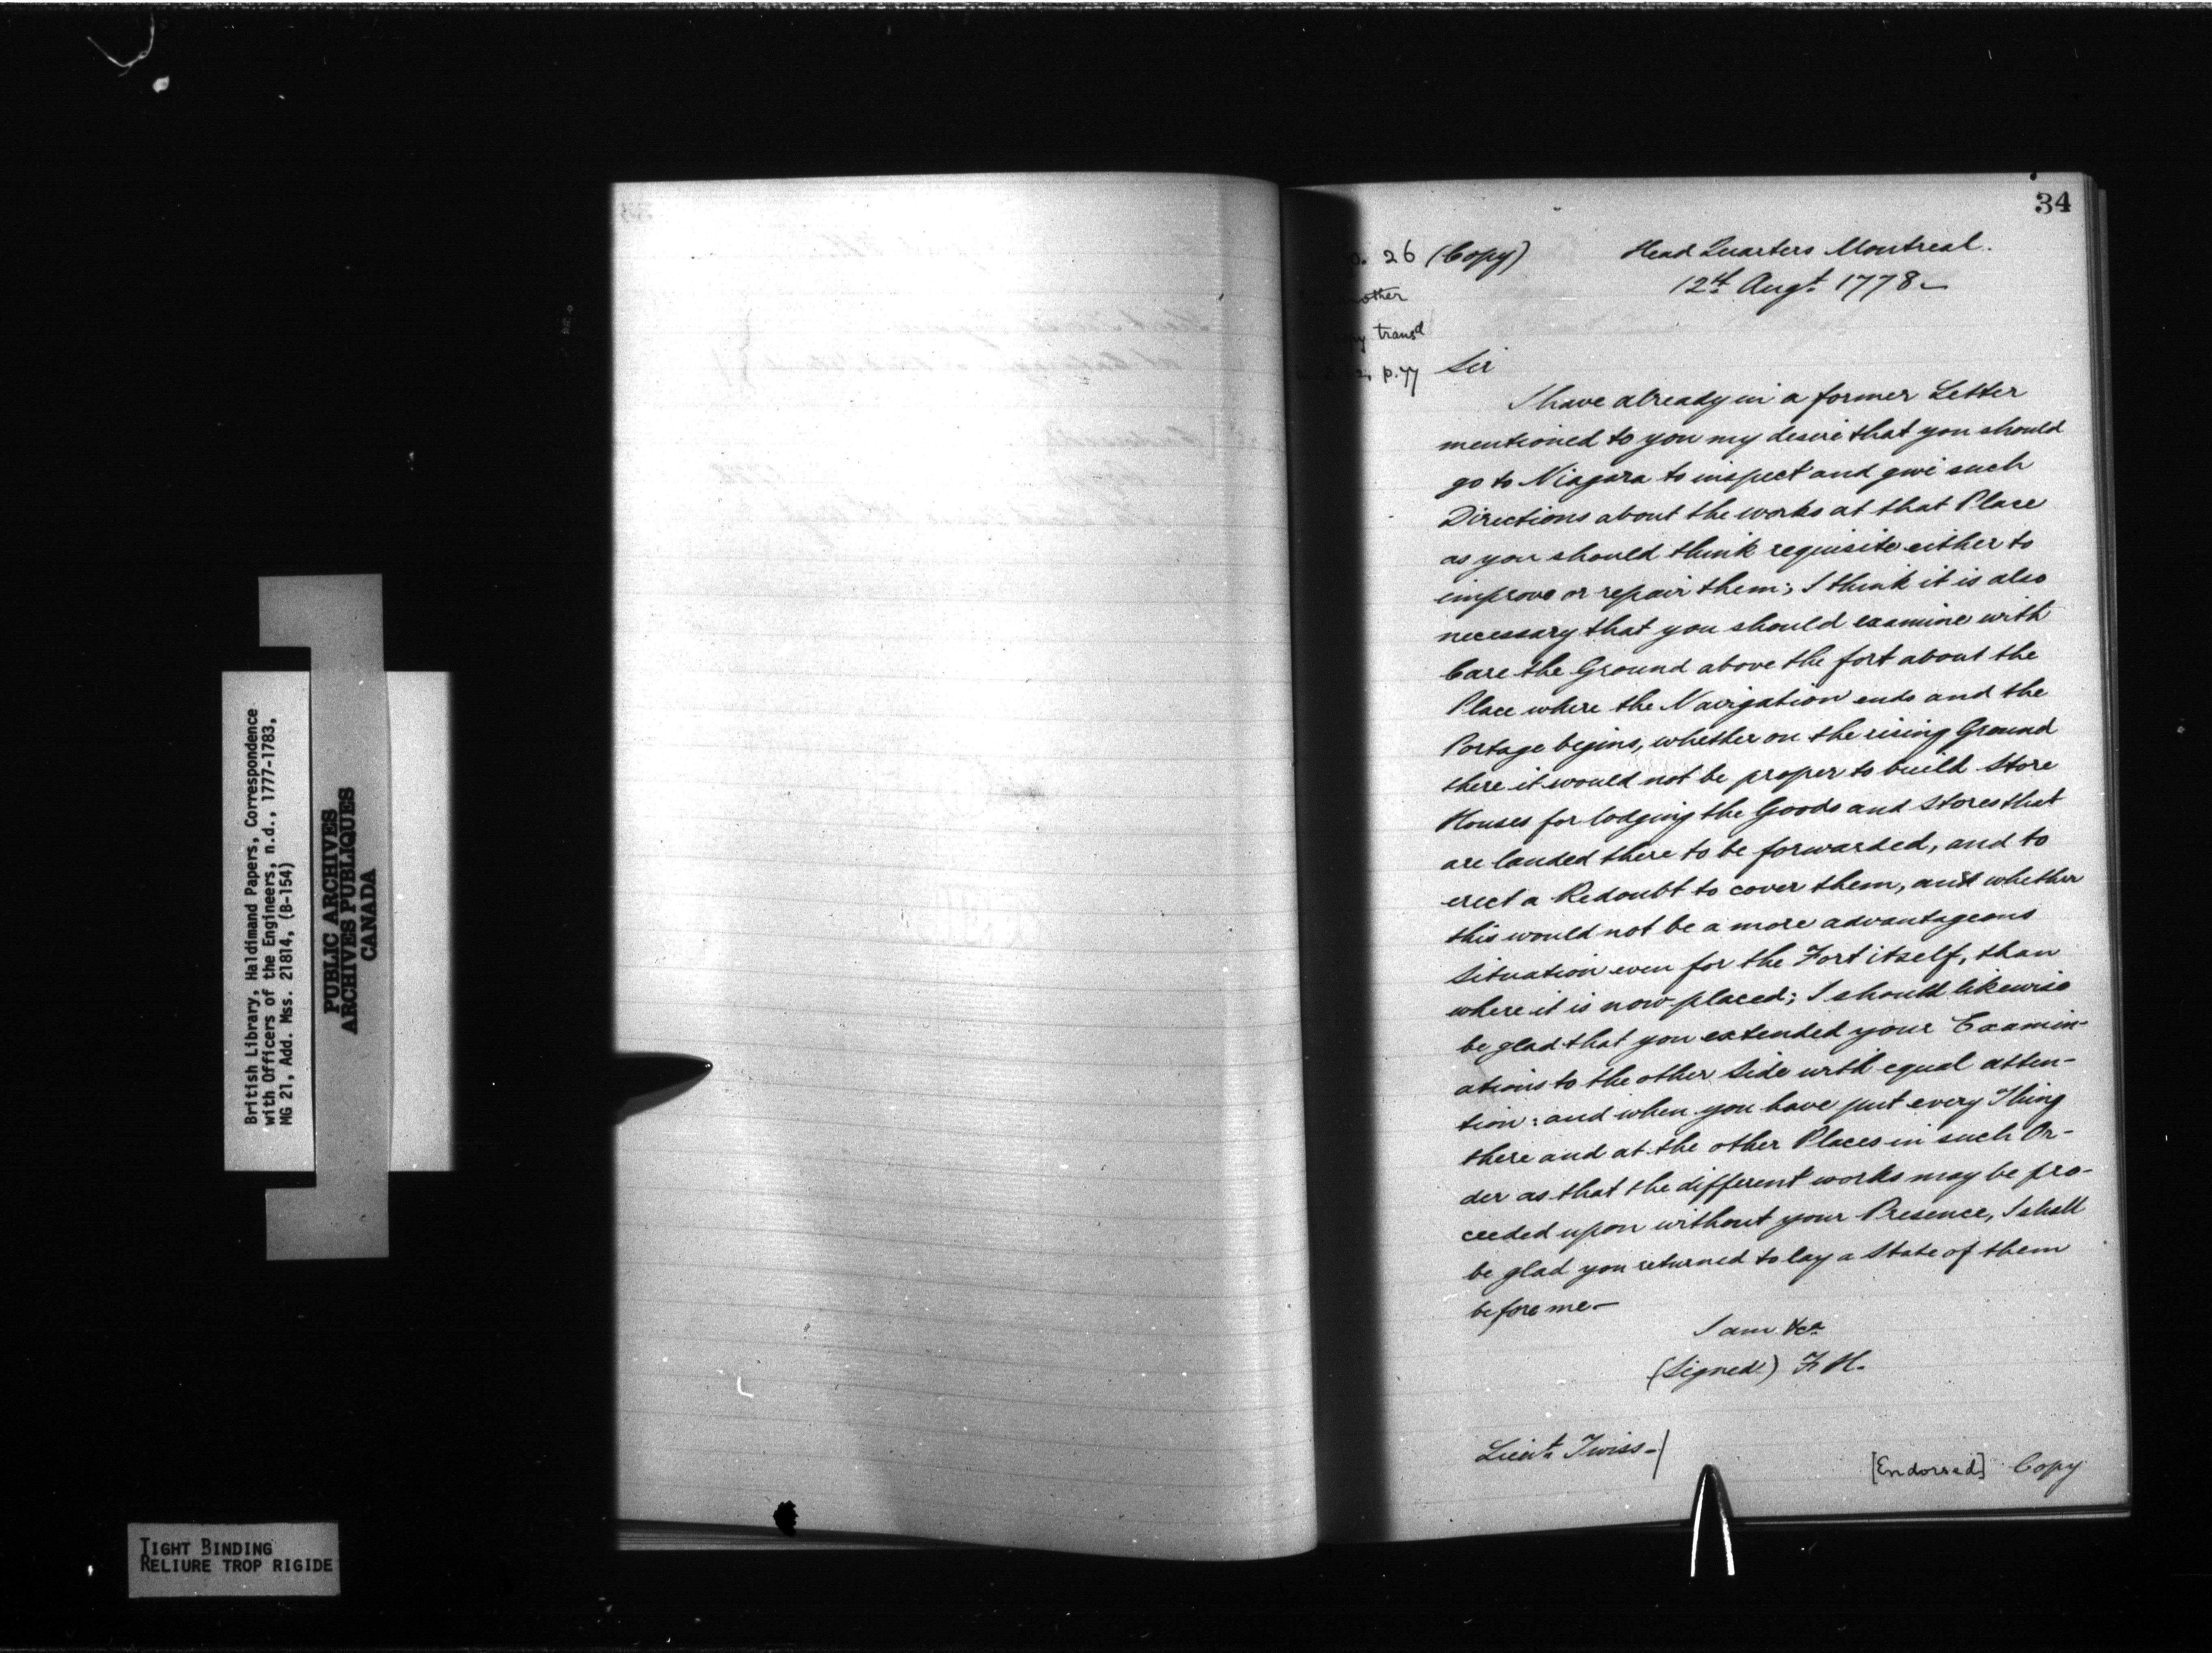 British Library, Haldimand Papers, Correspondence
with Officers of the Engineers, n.d., 1777-1783,
MG 21, Add. Mss. 21814, (B-154)
PUBLIC ARCHIVES
ARCHIVES PUBLIQUES
CANADA
TIGHT BINDING
RELIURE TROP RIGIDE
34
26 (Copy)
Head Quarters Montreal.
12th Augt 1778—
transd
p. 77
Sir
I have already in a former Letter
mentioned to you my desire that you should
go to Niagara to inspect and give such
Directions about the works at that Place
as you should think requisite either to
improve or repair them; I think it is also
necessary that you should examine with
Care the Ground above the fort about the
Place where the Navigation ends and the
Portage begins, whether on the rising Ground
there it would not be proper to build Store
Houses for lodging the Goods and Stores that
are landed there to be forwarded, and to
erect a Redoubt to cover them, and whether
this would not be a more advantageous
Situation even for the Fort itself, than
where it is now placed; I should likewise
be glad that you extended your Examin-
ations to the other Side with equal atten-
tion: and when you have put every Thing
there and at the other Places in such Or-
der as that the different works may be pro-
ceeded upon without your Presence, I shall
be glad you returned to lay a State of them
before me—
I am &ca
(Signed) F H.
Lieut. Twiss—/
[Endorsed] Copy